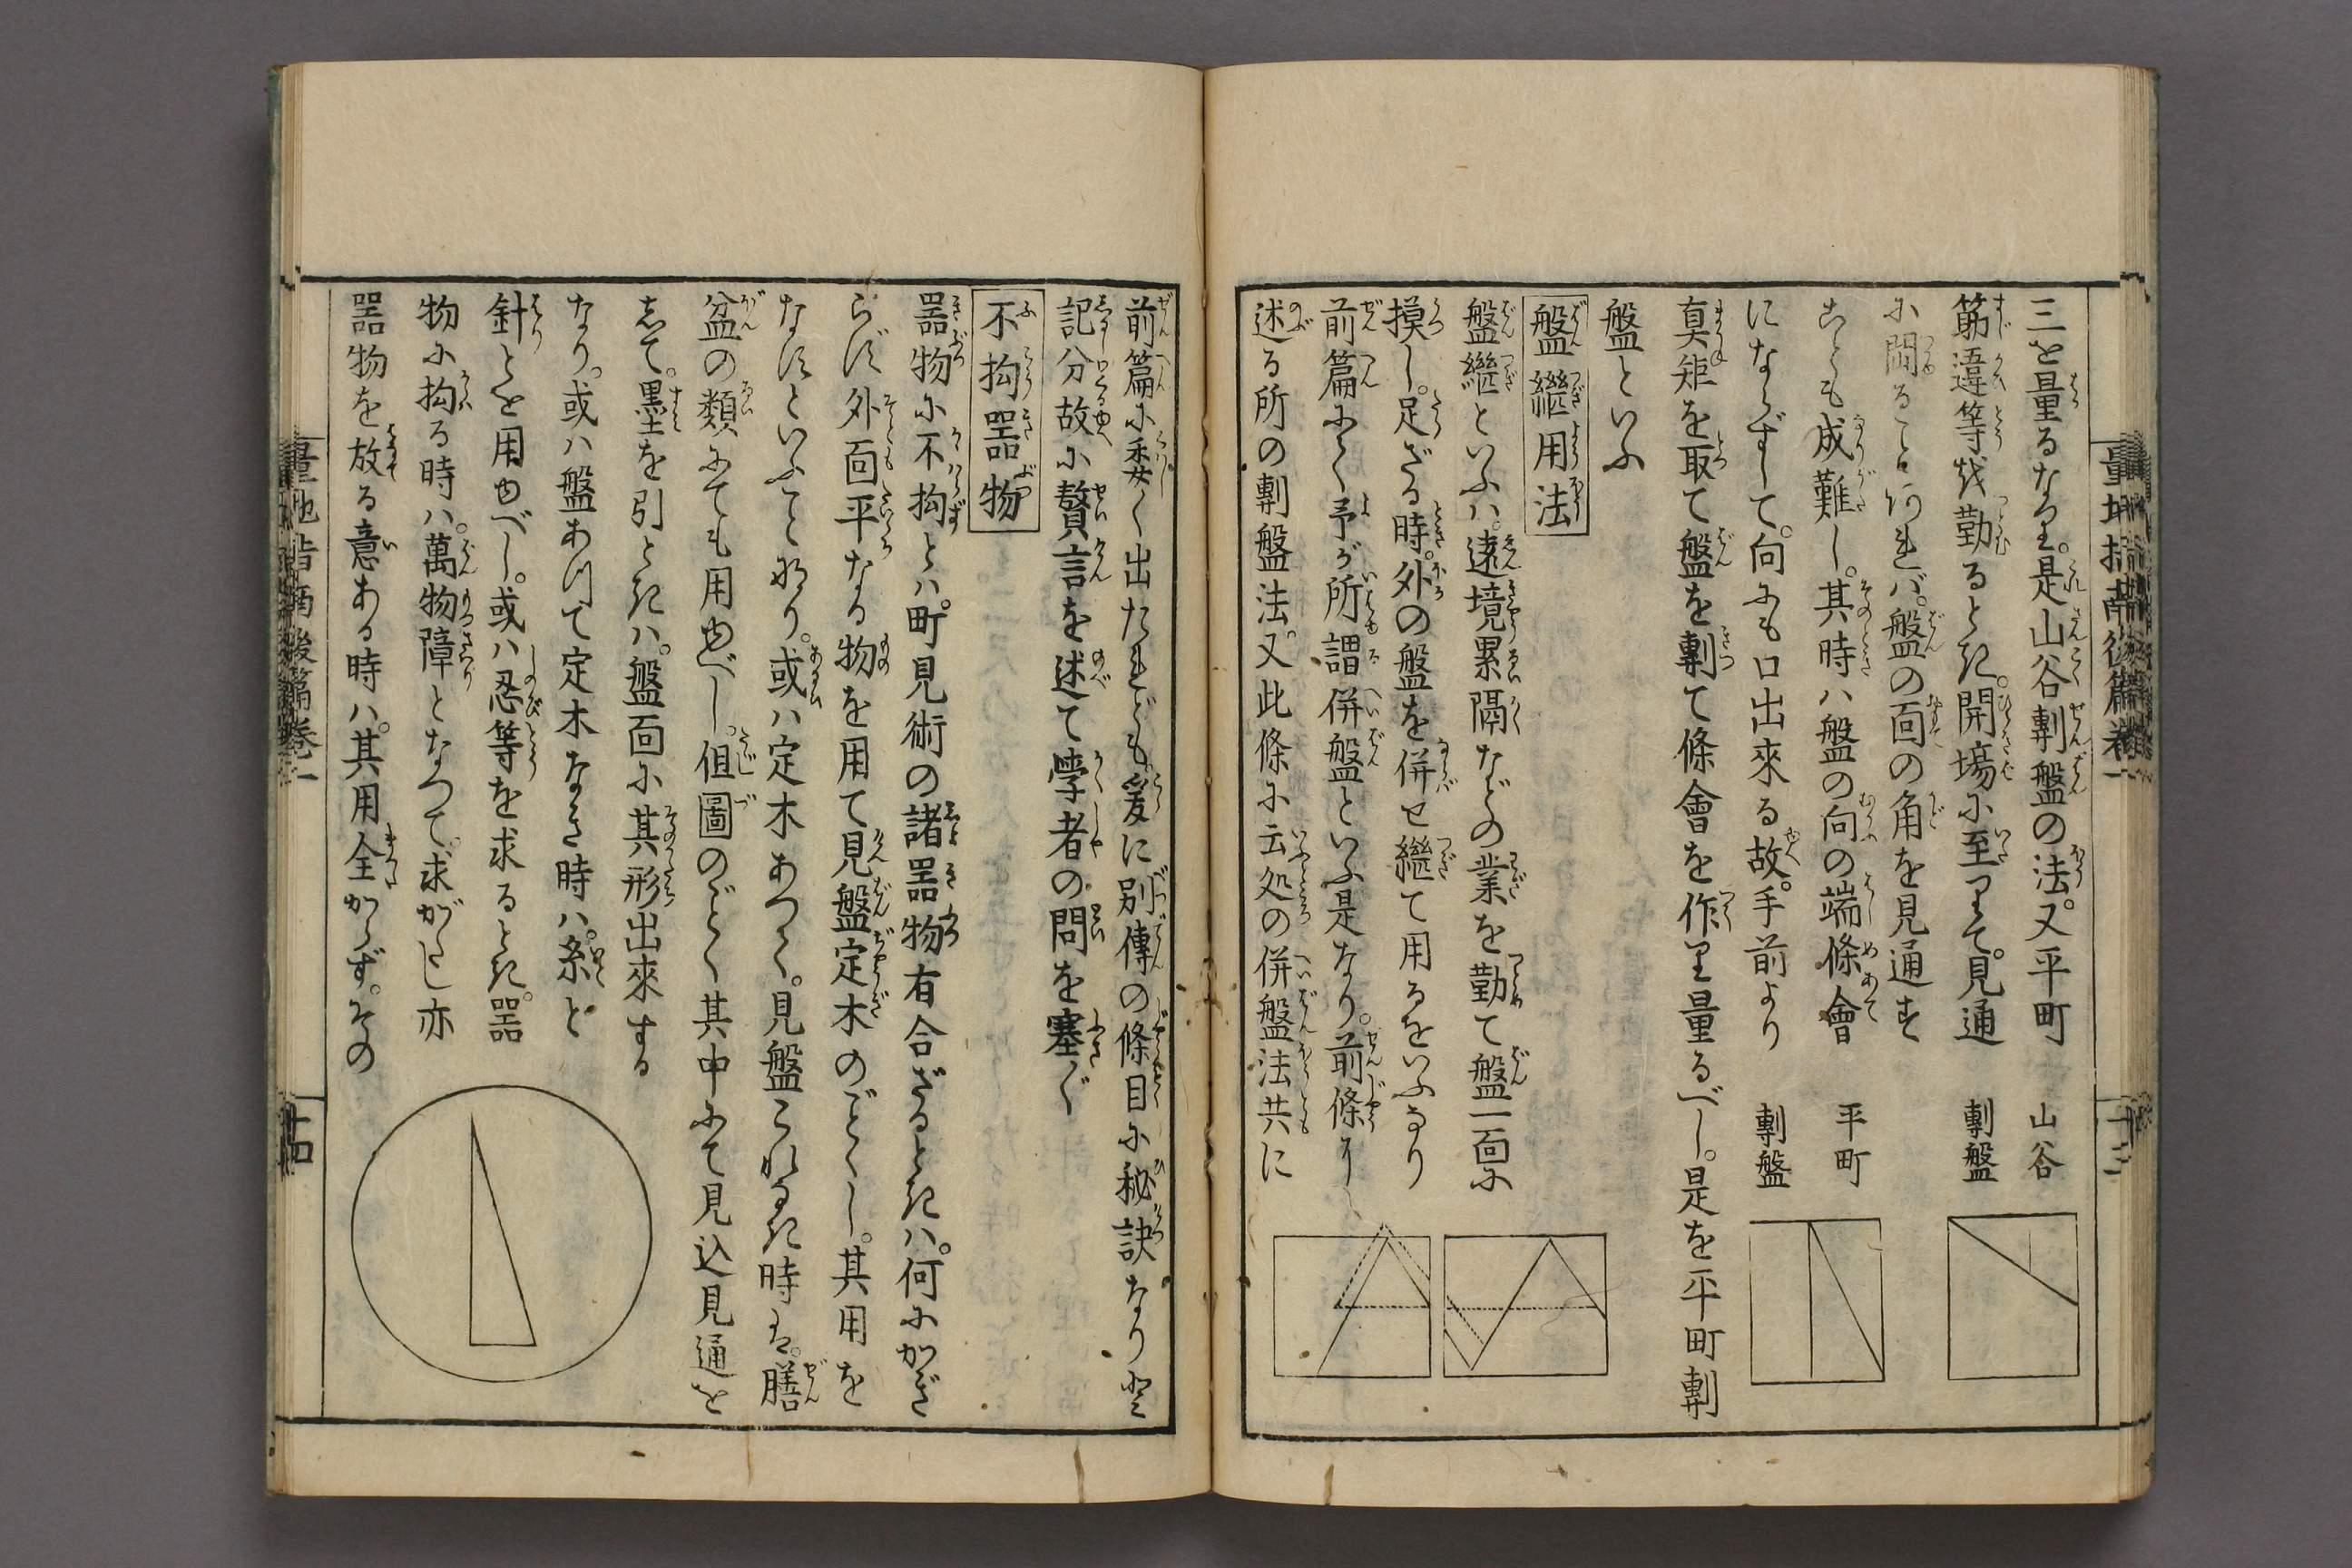 三を量るなり。是山谷剸盤の法。又平町
筋違等を勤るとき。開場に至りて。見通
に閊ることあれバ。盤の面の角を見通すこ
とも成難し。其時ハ盤の向の端條會
にならずして。向にも口出來る故。手前より
真矩を取て盤を剸て條會を作り量るべし。是を平町剸
盤といふ
山谷
剸盤
平町
剸盤
盤繼用法
盤繼といふハ。遠境累隔などの業を勤て盤一面に
摸し。足ざる時。外の盤を併せ繼て用るをいふなり
前篇にて予が所謂併盤といふ是なり。前條に
述る所の剸盤法。又此條に云処の併盤法共に
量地指南後篇卷一
十三
前篇に委く出たれども。爰に別傳の條目に秘訣なりと
記分故に贅言を述て學者の問を塞ぐ
不拘噐物
噐物に不拘とハ。町見術の諸噐物有合ざるときハ。何にかぎ
らず外面平なる物を用て見盤定木のごとくし。其用を
なすといふこと也。或ハ定木あつて。見盤これなき時は。膳
盆の類にても用ゆべし。但圖のごとく其中にて見込見通を
して。墨を引ときハ。盤面に其形出來する
なり。或ハ盤あつて定木なき時ハ。糸と
針とを用ゆべし。或ハ忍等を求るとき。噐
物に拘る時ハ。萬物障となつて。求がたし亦
噐物を放る意ある時ハ。其用全からず。その
量地指南後篇卷一
十四